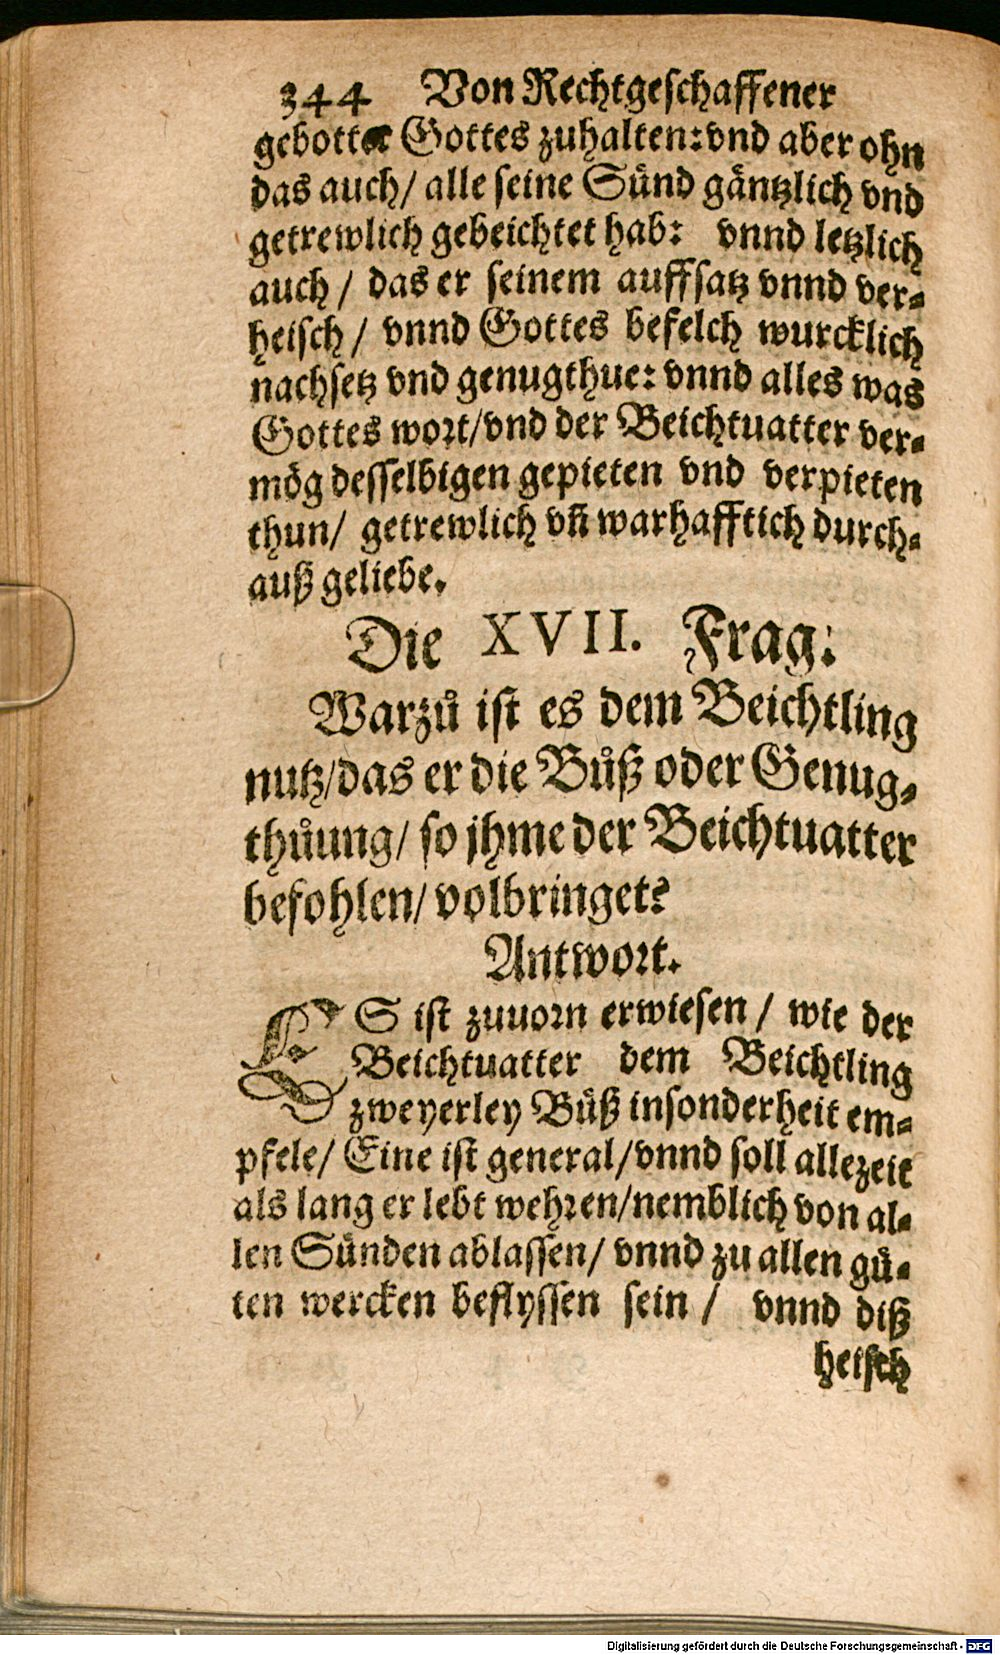 344 Von Rechtgeschaffener
gebotter Gottes zuhalten: vnd aber ohn
das auch / alle seine Sünd gäntzlich vnd
getrewlich gebeichtet hab: vnnd letzlich
auch / das er seinem auffsatz vnnd ver-
heisch / vnnd Gottes befelch wurcklich
nachsetz vnd genugthue: vnnd alles was
Gottes wort / vnd der Beichtuatter ver-
mög desselbigen gepieten vnd verpieten
thun / getrewlich vñ warhafftich durch-
auß geliebe.
Die XVII. Frag:
Warzů ist es dem Beichtling
nutz / das er die Bůß oder Genug-
thůung / so jhme der Beichtuatter
befohlen / volbringet?
Antwort.
ES ist zuuorn erwiesen / wie der
Beichtuatter dem Beichtling
zweyerley Bůß insonderheit em-
pfele / Eine ist general / vnnd soll allezeit
als lang er lebt wehren / nemblich von al-
len Sünden ablassen / vnnd zu allen gů-
ten wercken beflyssen sein / vnnd diß
heisch
Digitalisierung gefördert durch die Deutsche Forschungsgemeinschaft - DFG